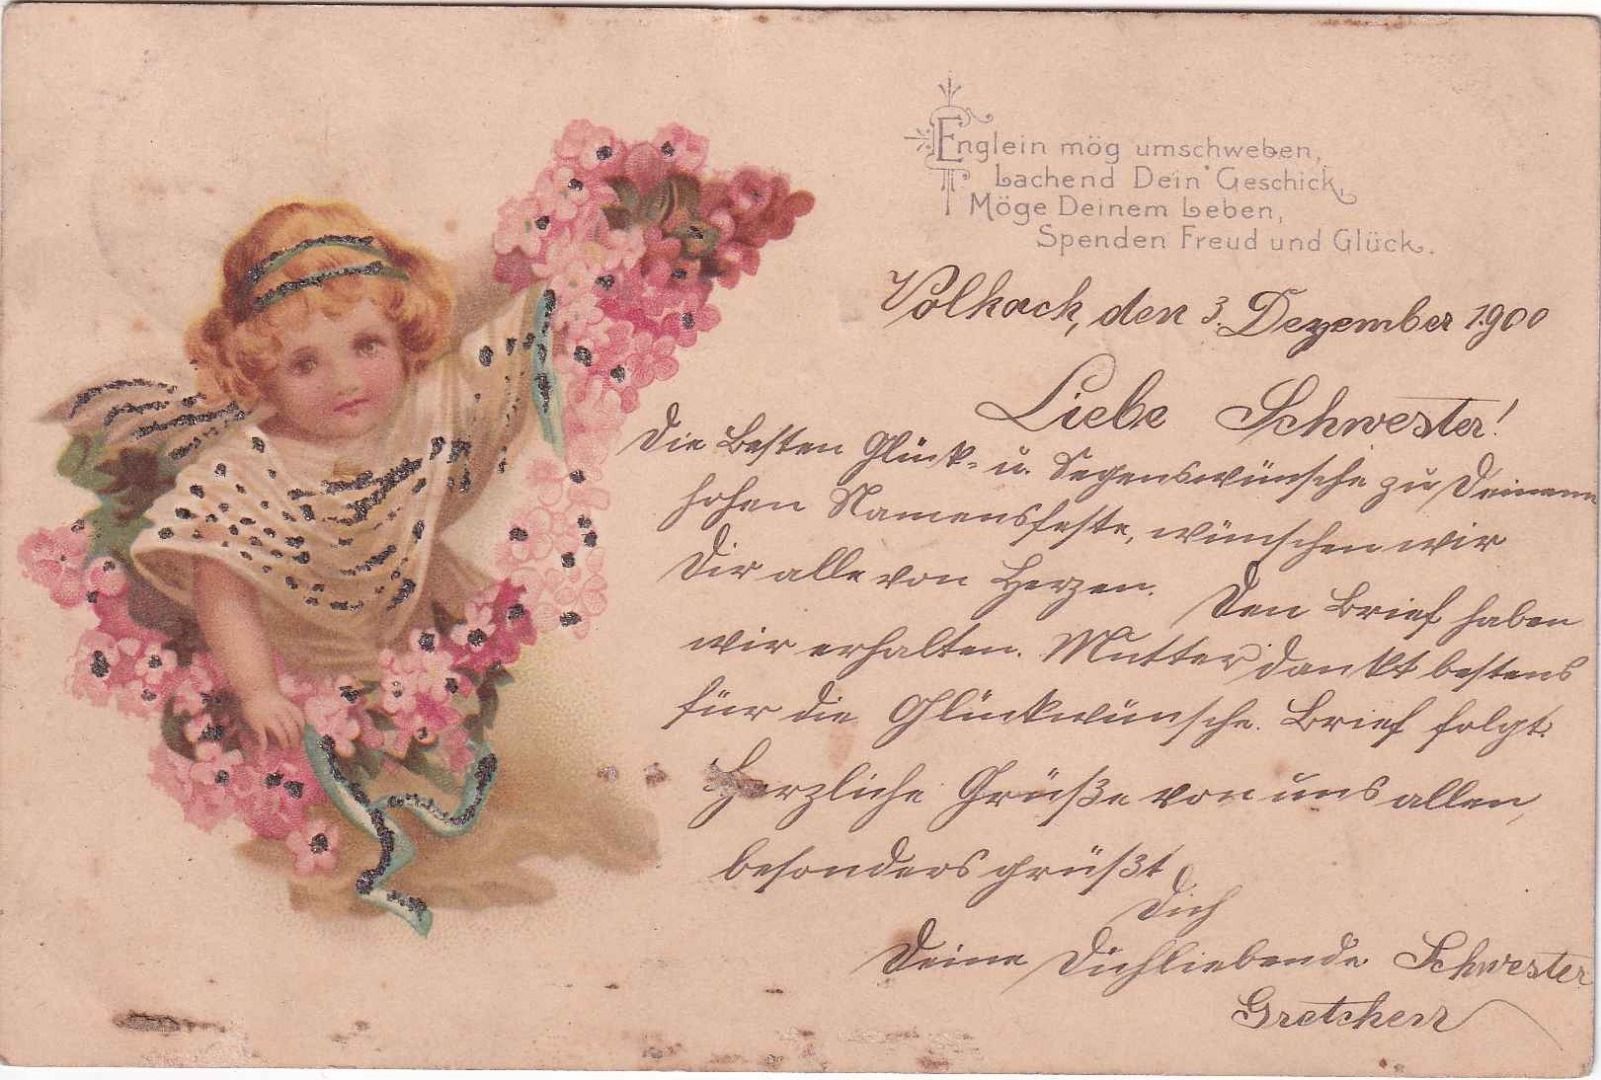 Englein mög umschweben,
Lachend Dein Geschick,
Möge Deinem Leben,
Spenden Freud und Glück.
Volkach, den 3. Dezember 1900
Liebe Schwester!
Die besten Glück- u. Segenswünsche zu Deinem
hohen Namensfeste, wünschen wir
Dir alle von Herzen. Den Brief haben
wir erhalten. Mutter dankt bestens
für die Glückwünsche. Brief folgt.
Herzliche Grüße von uns allen,
besonders grüßt
Dich
Deine Dichliebende Schwester
Gretchen